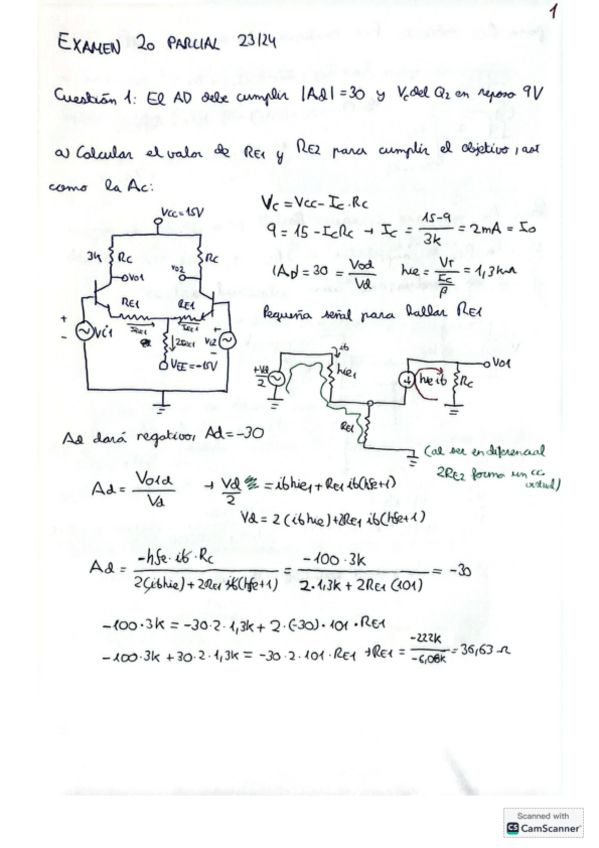 1
EXAMEN 2o PARCIAL 23/24
Cuestión 1: El AD debe cumplir |Ad|=30 y Vc del Q2 en reposo 9V
a) Calcular el valor de RE1 y RE2 para cumplir el objetivo, así
como la Ac:
Vcc=15V
3k Rc Vo1 Vo2 Rc
RE1 RE1
+ Vi1 - + Vi2 -
VEE=-15V
Vc = Vcc - Ic·Rc
9 = 15 - IcRc → Ic = 15-9/3k = 2mA = Io
|Ad| = 30 = Vod/Vd hie = VT/Ic/β = 1,3kΩ
Pequeña señal para hallar RE1
+Vd/2 ib hie1 hfe ib Rc Vo1
RE1
Ad dará negativo, Ad=-30
(al ser en diferencial
2RE2 forma un cc
virtual)
Ad = Vo1d/Vd → Vd/2 = ib hie1 + RE1 ib(hfe+1)
Vd = 2(ib hie) + 2RE1 ib(hfe+1)
Ad = -hfe·ib·Rc/2(ib hie)+2RE1 ib(hfe+1) = -100·3k/2·1,3k+2RE1(101) = -30
-100·3k = -30·2·1,3k + 2·(-30)·101·RE1
-100·3k + 30·2·1,3k = -30·2·101·RE1 → RE1 = -222k/-6,06k = 36,63 Ω
Scanned with
CS CamScanner